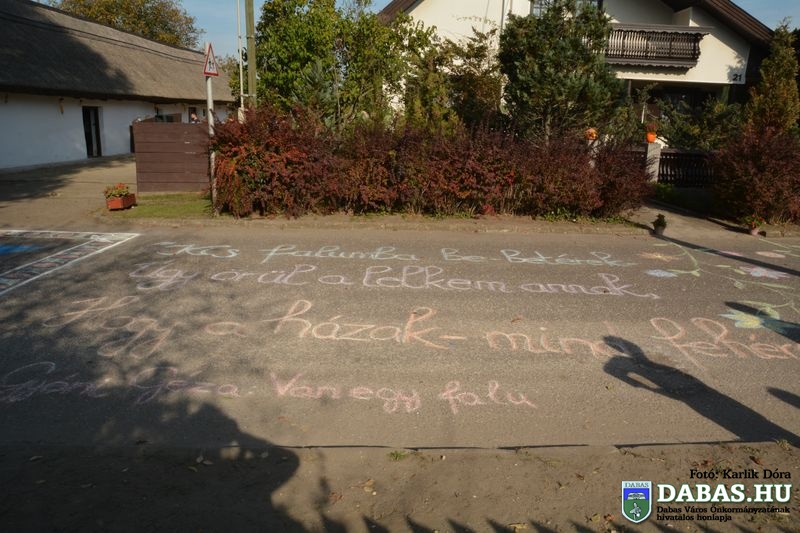 "Kis falumba be-betérek
Úgy örül a lelkem annak,
Hogy a házak - mind fehérek
Gyóni Géza: Van egy falu
21
Fotó: Karlik Dóra
DABAS
DABAS.HU
Dabas Város Önkormányzatának
hivatalos honlapja